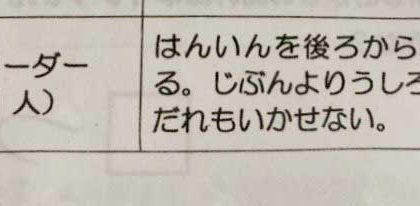 ーダー
人）
はんいんを後ろから
る。じぶんよりうしろ
だれもいかせない。